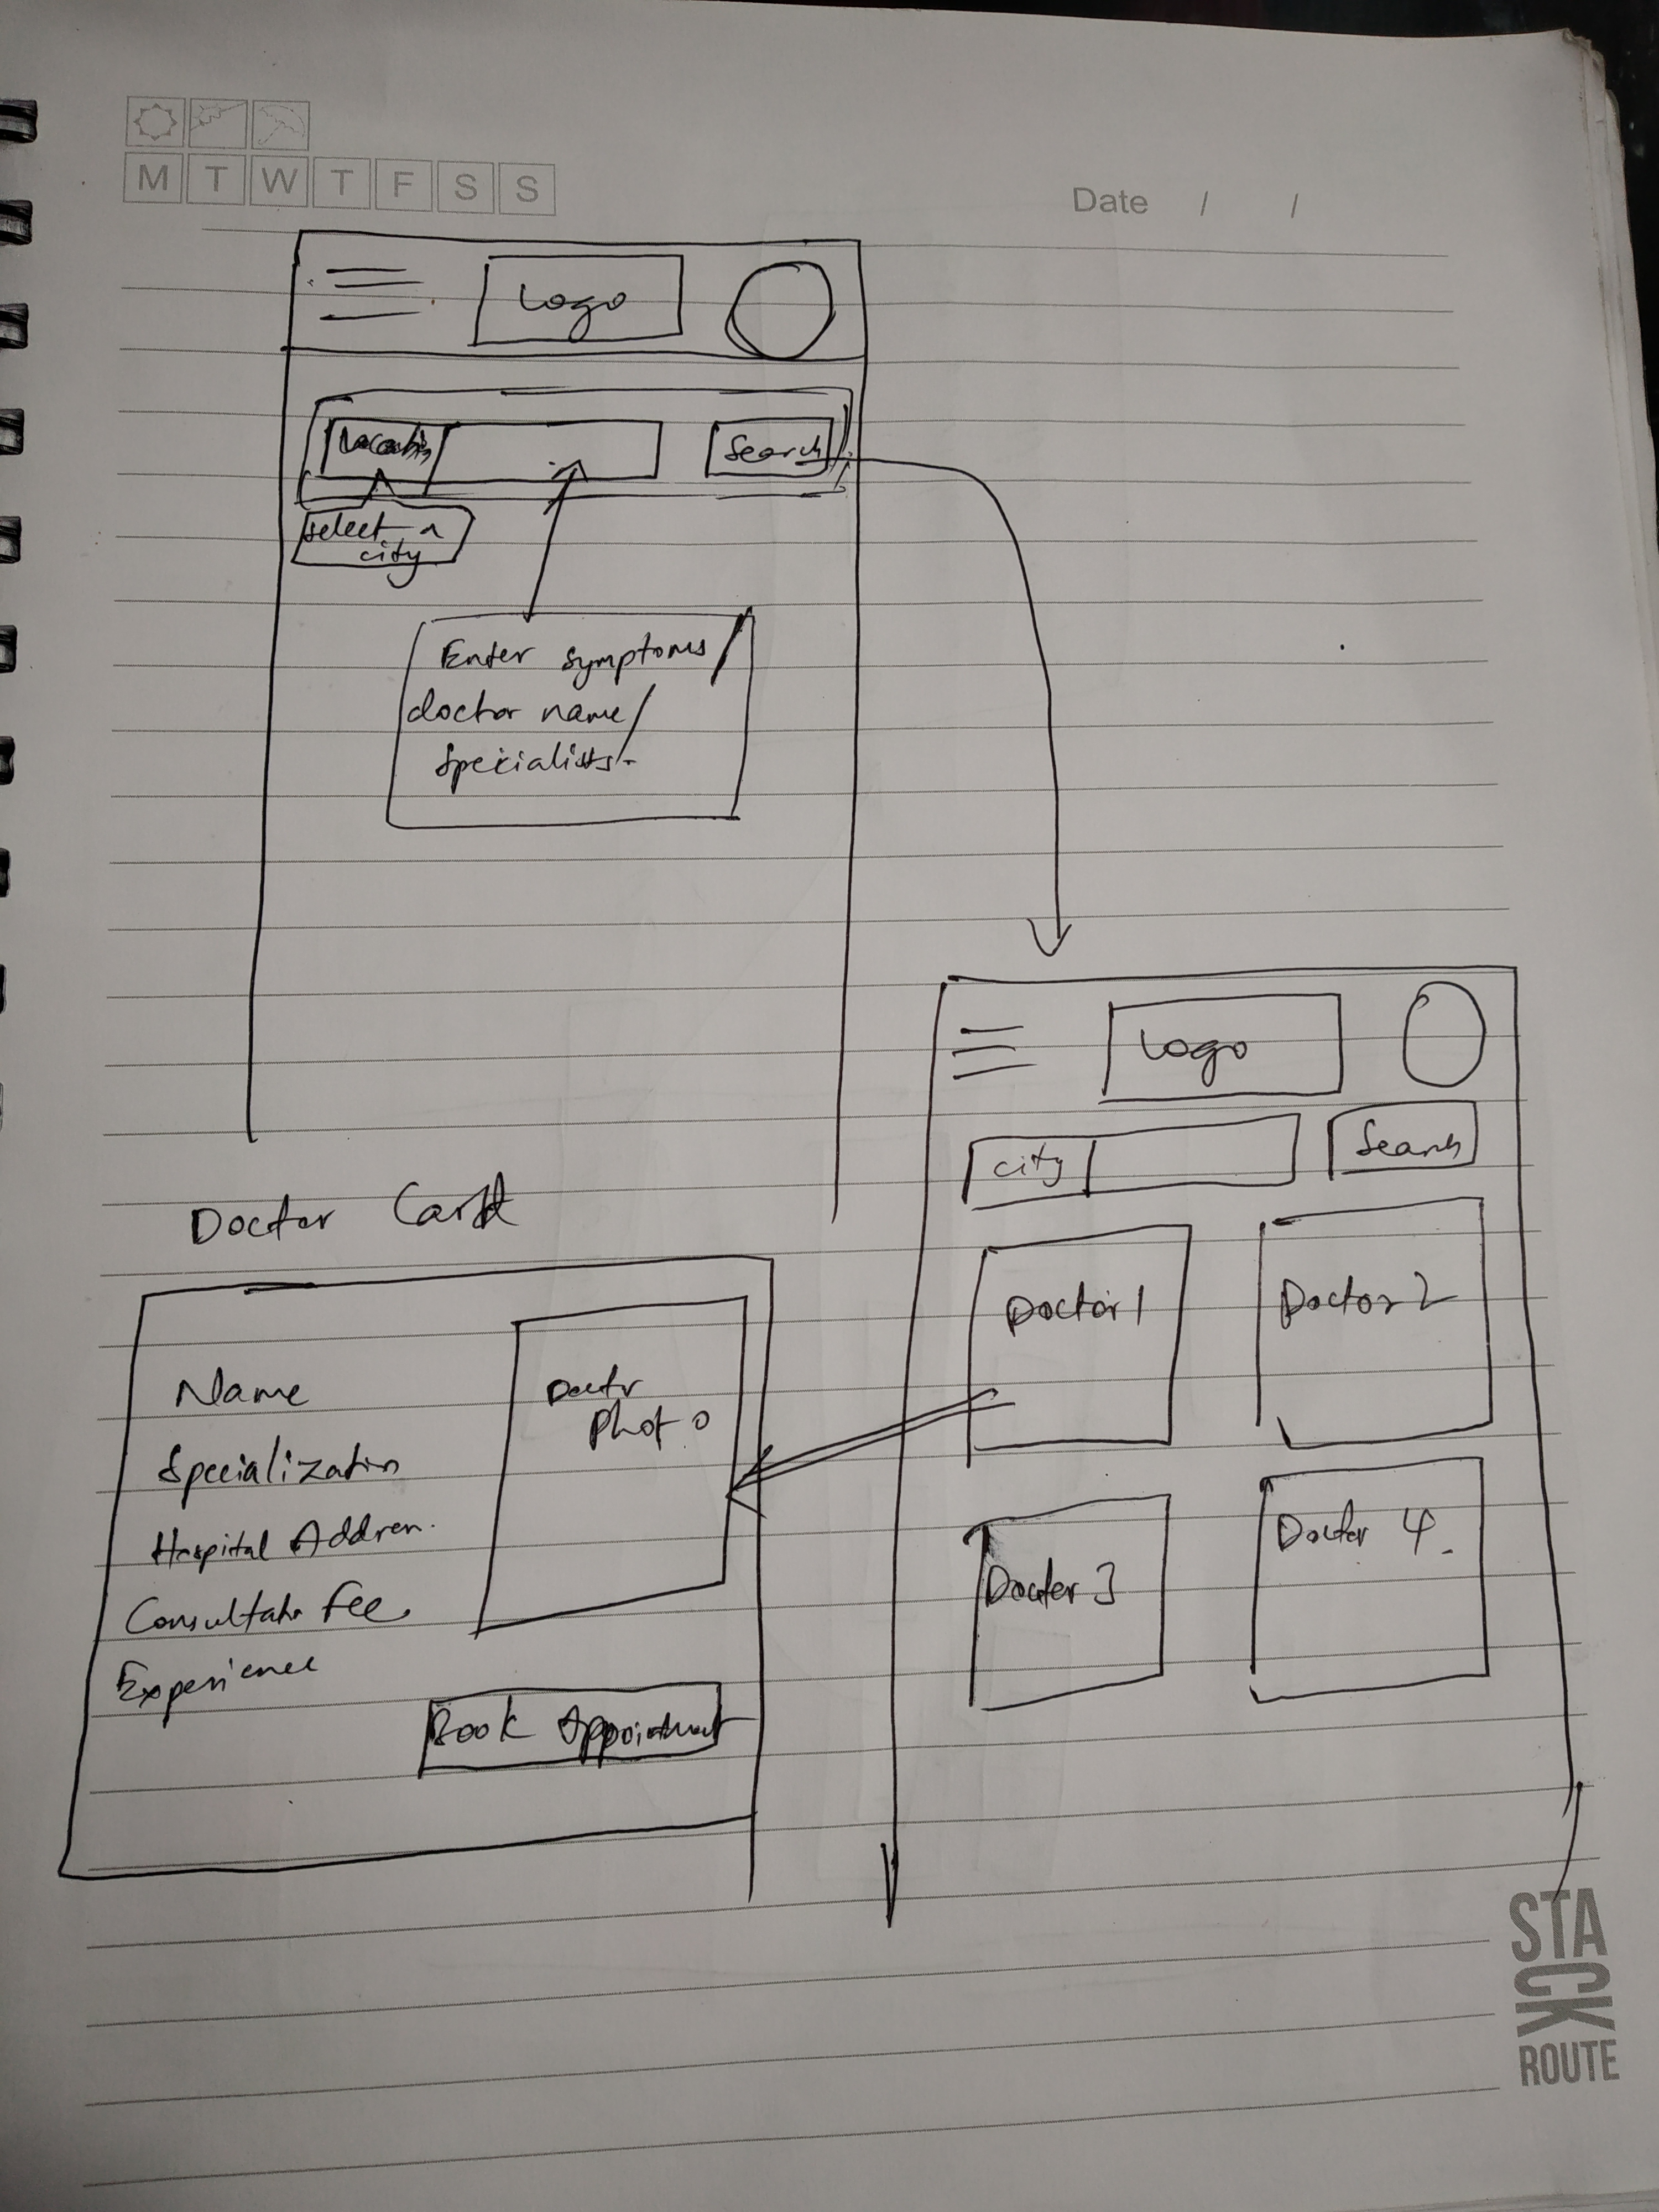 M T W T F S S
Date / /
Logo
Location
Search
select a
city
Enter symptoms/
doctor name/
specialists.
Logo
city
Search
Doctor 1
Doctor 2
Doctor 3
Doctor 4.
Doctor Card
Name
Specialization
Hospital Address.
Consultatn Fee
Experience
Doctr
Photo
Book Appointment
STA
CK
ROUTE